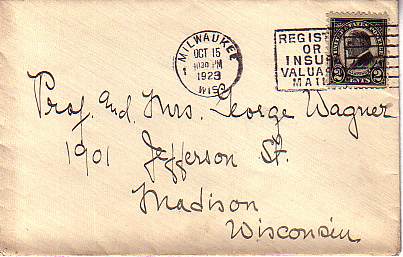 MILWAUKEE
OCT 15
1030 PM
1923
WIS.
REGIST
OR
INSU
VALUA
MAIL
Prof. and Mrs. George Wagner
1901 Jefferson St.
Madison
Wisconsin